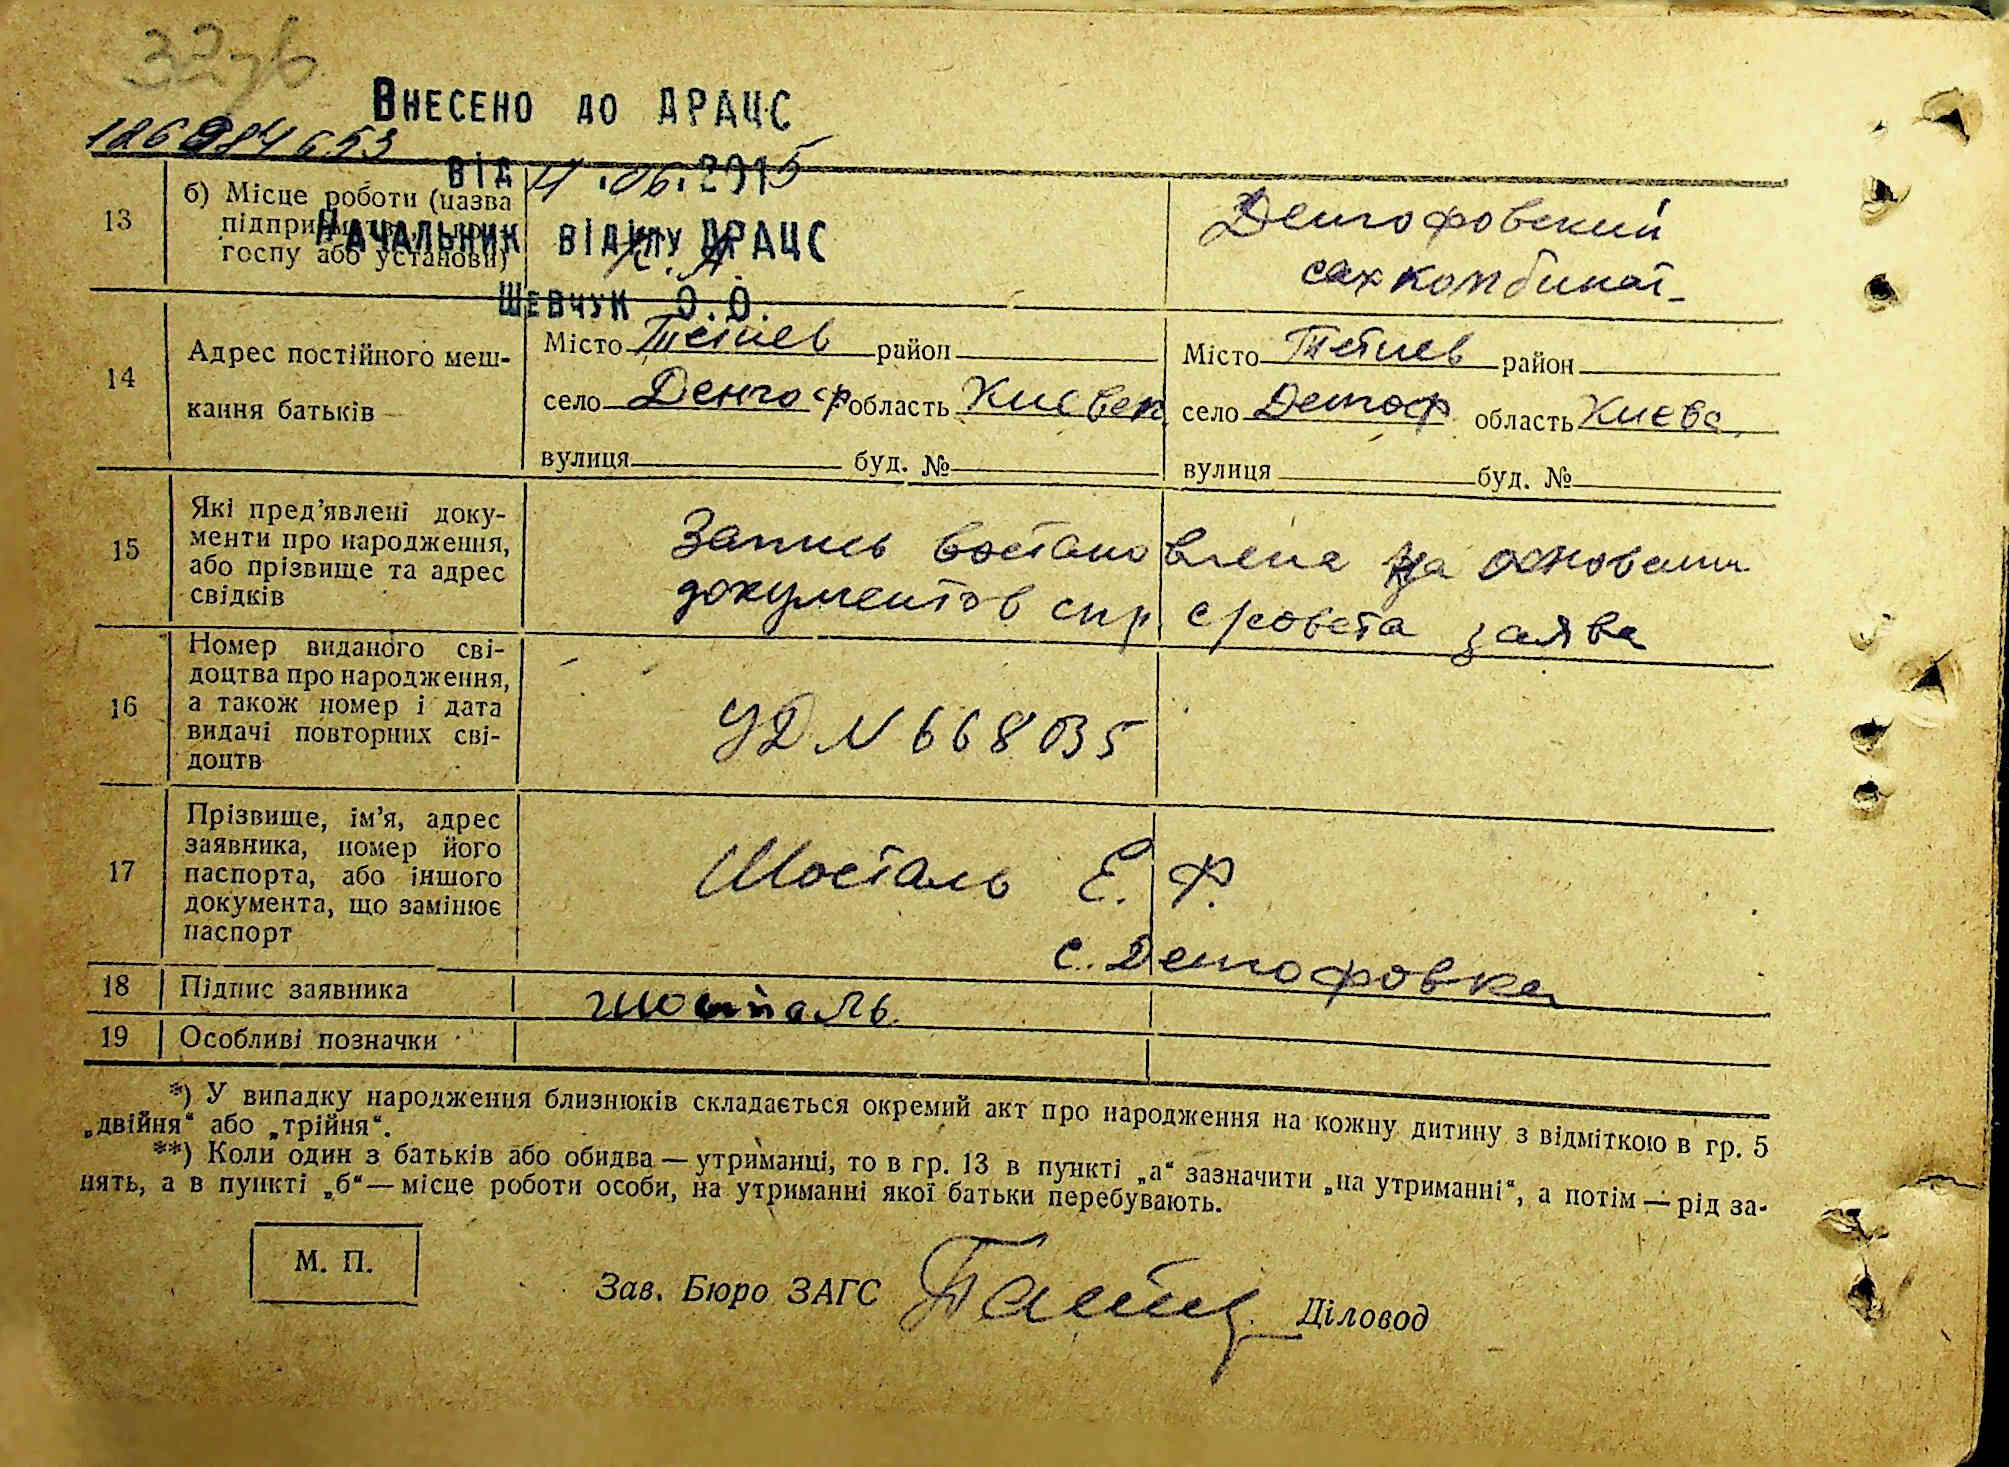 32
Внесено до ДРАЦС
186984653
від 11.06.2015
13
б) Місце роботи (назва
госпу або установи)
Начальник відділу ДРАЦС
Шевчук О.О.
К.А.
Денгофовский
сахкомбинат
14
Адрес постійного меш-
кання батьків
Місто Тетиев район
село Денгоф область Києвск
вулиця буд. №
Місто Тетиев район
село Денгоф область Києвс
вулиця буд. №
15
Які пред'явлені доку-
менти про народження,
або прізвище та адрес
свідків
Запись востановлена на основании
документов спр с/совета заява
16
Номер виданого сві-
доцтва про народження,
а також номер і дата
видачі повторних сві-
доцтв
УД N 668035
17
Прізвище, ім'я, адрес
заявника, номер його
паспорта, або іншого
документа, що замінює
паспорт
Шосталь Е. Ф.
с. Денгофовка
18
Підпис заявника
Шосталь
19
Особливі позначки
*) У випадку народження близнюків складається окремий акт про народження на кожну дитину з відміткою в гр. 5
„двійня“ або „трійня“.
**) Коли один з батьків або обидва — утриманці, то в гр. 13 в пункті „а“ зазначити „на утриманні“, а потім — рід за-
нять, а в пункті „б“ — місце роботи особи, на утриманні якої батьки перебувають.
М. П.
Зав. Бюро ЗАГС
Діловод